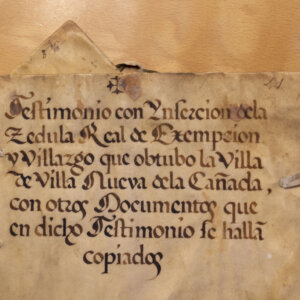 Testimonio con Ynsercion dela
Zedula Real de Exempcion
y Villazgo que obtubo la Villa
de Villa Nueva dela Cañada,
con otros Documentos que
en dicho Testimonio se hallā
copiados